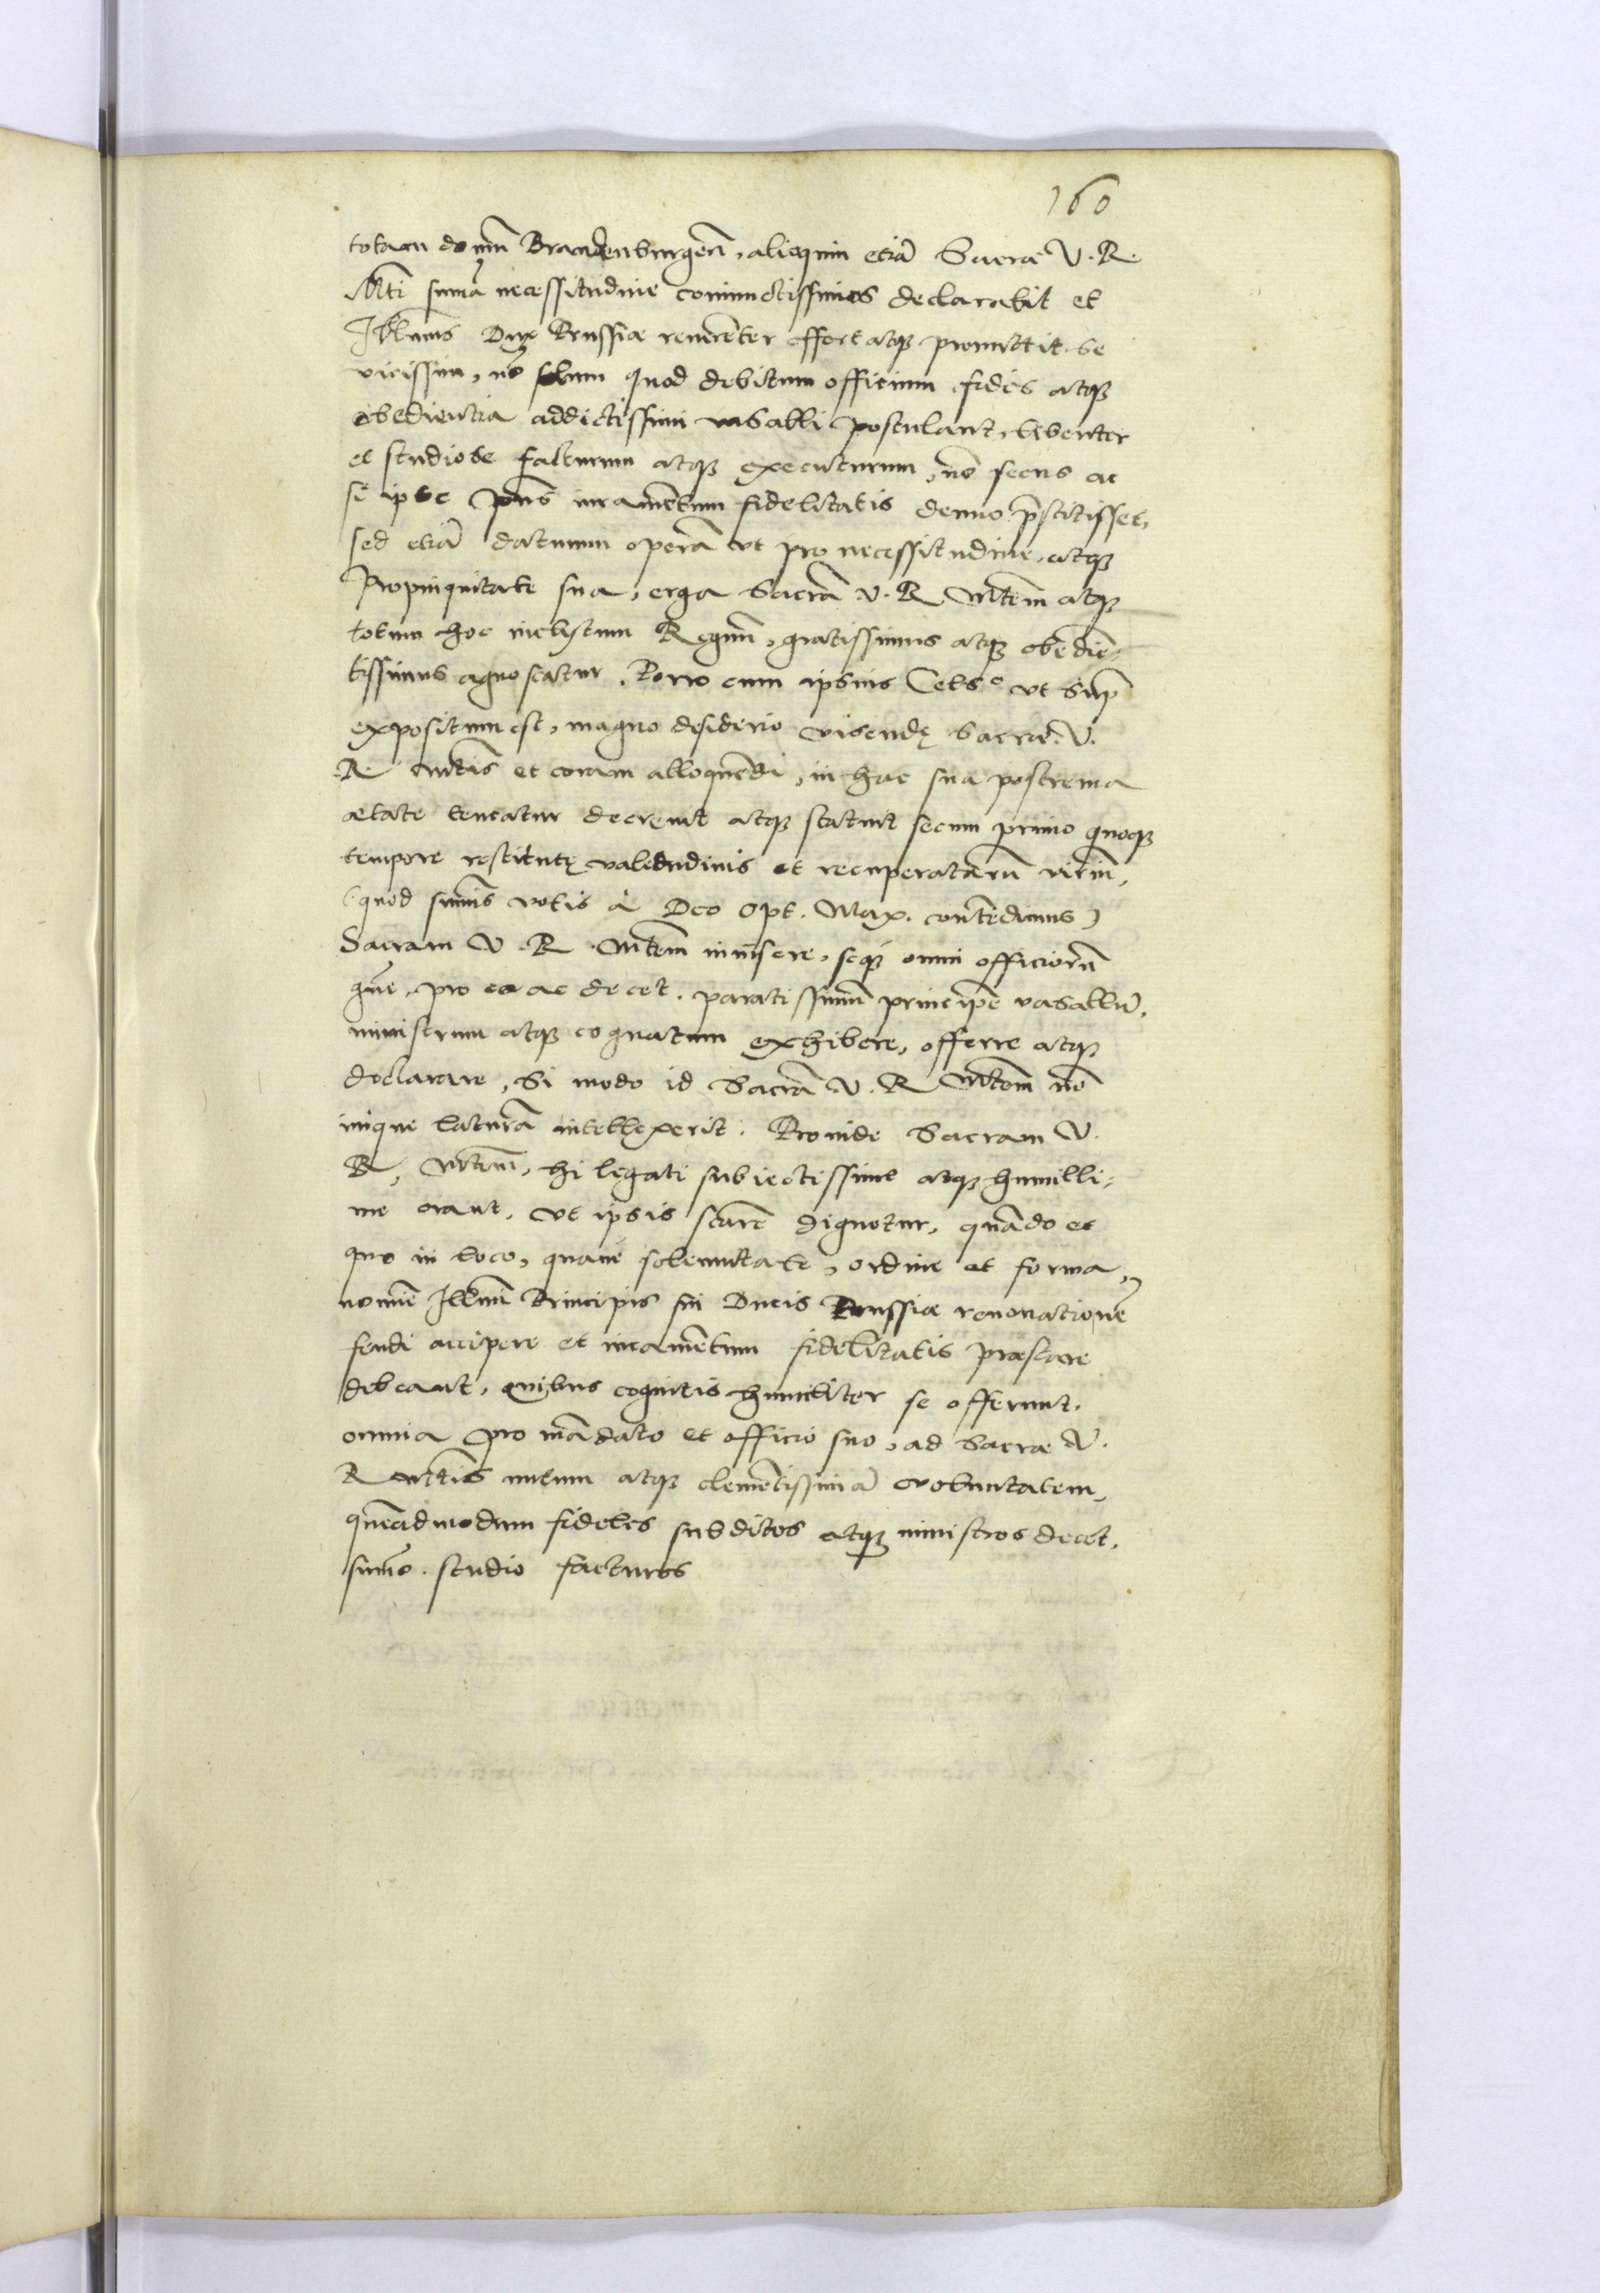 160
totam domū Brandenburgeñ, alioquin etiā Sacrae V. R.
Mti suma necessitudine coniunctissimos declarabit et
Illmus Dux Prussiae reuerēter offert atq̃ promittit se
vicissim, nō solum quod debitum officium fides atq̃
obedientia addictissimi vasalli postulant, libenter
et studiose facturum atq̃ executurum, nō secus ac
si ipse pñs iuramētum fidelitatis denuo p̄stitisset,
sed etiā daturum operā ut pro necessitudine, atq̃
Propinquitate sua, erga Sacrā V. R Mtem̄ atq̃
totum hoc inclytum Regnū, gratissimus atq̃ obediē-
tissimus agnoscatur. Porro cum ipsius Celso ut sup̄
expositum est, magno desiderio visendę Sacrae V.
R. Mtis et coram alloquēdi, in hac sua postrema
aetate teneatur decreuit atq̃ statuit secum primo quoq̃
tempore restitutę valetudinis et recuperatarū viriū,
(quod sum̄is votis à Deo Opt. Max. contēdimus)
Sacram V. R. Mtem̄ inuisere, seq̃ omni officiorū
gñe, pro eo ac decet. paratissimū principē vasallū,
ministrum atq̃ cognatum exhibere, offerre atq̃
declarare, Si modo id Sacrā V. R Mtem̄ nō
inique laturā intellexerit. Proinde Sacram V.
R, Mtem̄, hi legati subiectissime atq̃ humilli-
me orant, ut ipsis sctare dignetur, quādo et
quo in loco, quaue solennitate, ordine et forma,
nomīe Illmi Principis sui Ducis Prussiae renouationē
feudi accipere et iuramētum fidelitatis praestare
debeant, Quibus cognitis humiliter se offerunt.
omnia pro mādato et officio suo, ad Sacrae V.
R Mtis nutum atq̃ clemētissimā voluntatem,
quēadmodum fideles subditos atq̃ ministros decet,
sum̄o studio facturos